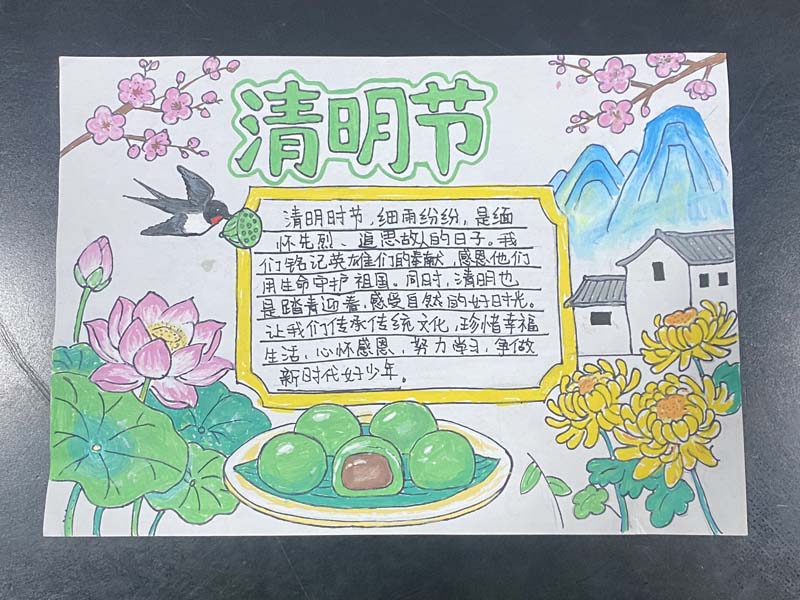 清明节
清明时节，细雨纷纷，是缅
怀先烈、追思故人的日子。我
们铭记英雄们的奉献，感恩他们
用生命守护祖国。同时，清明也
是踏青迎春，感受自然的好时光。
让我们传承传统文化，珍惜幸福
生活，心怀感恩，努力学习，争做
新时代好少年。